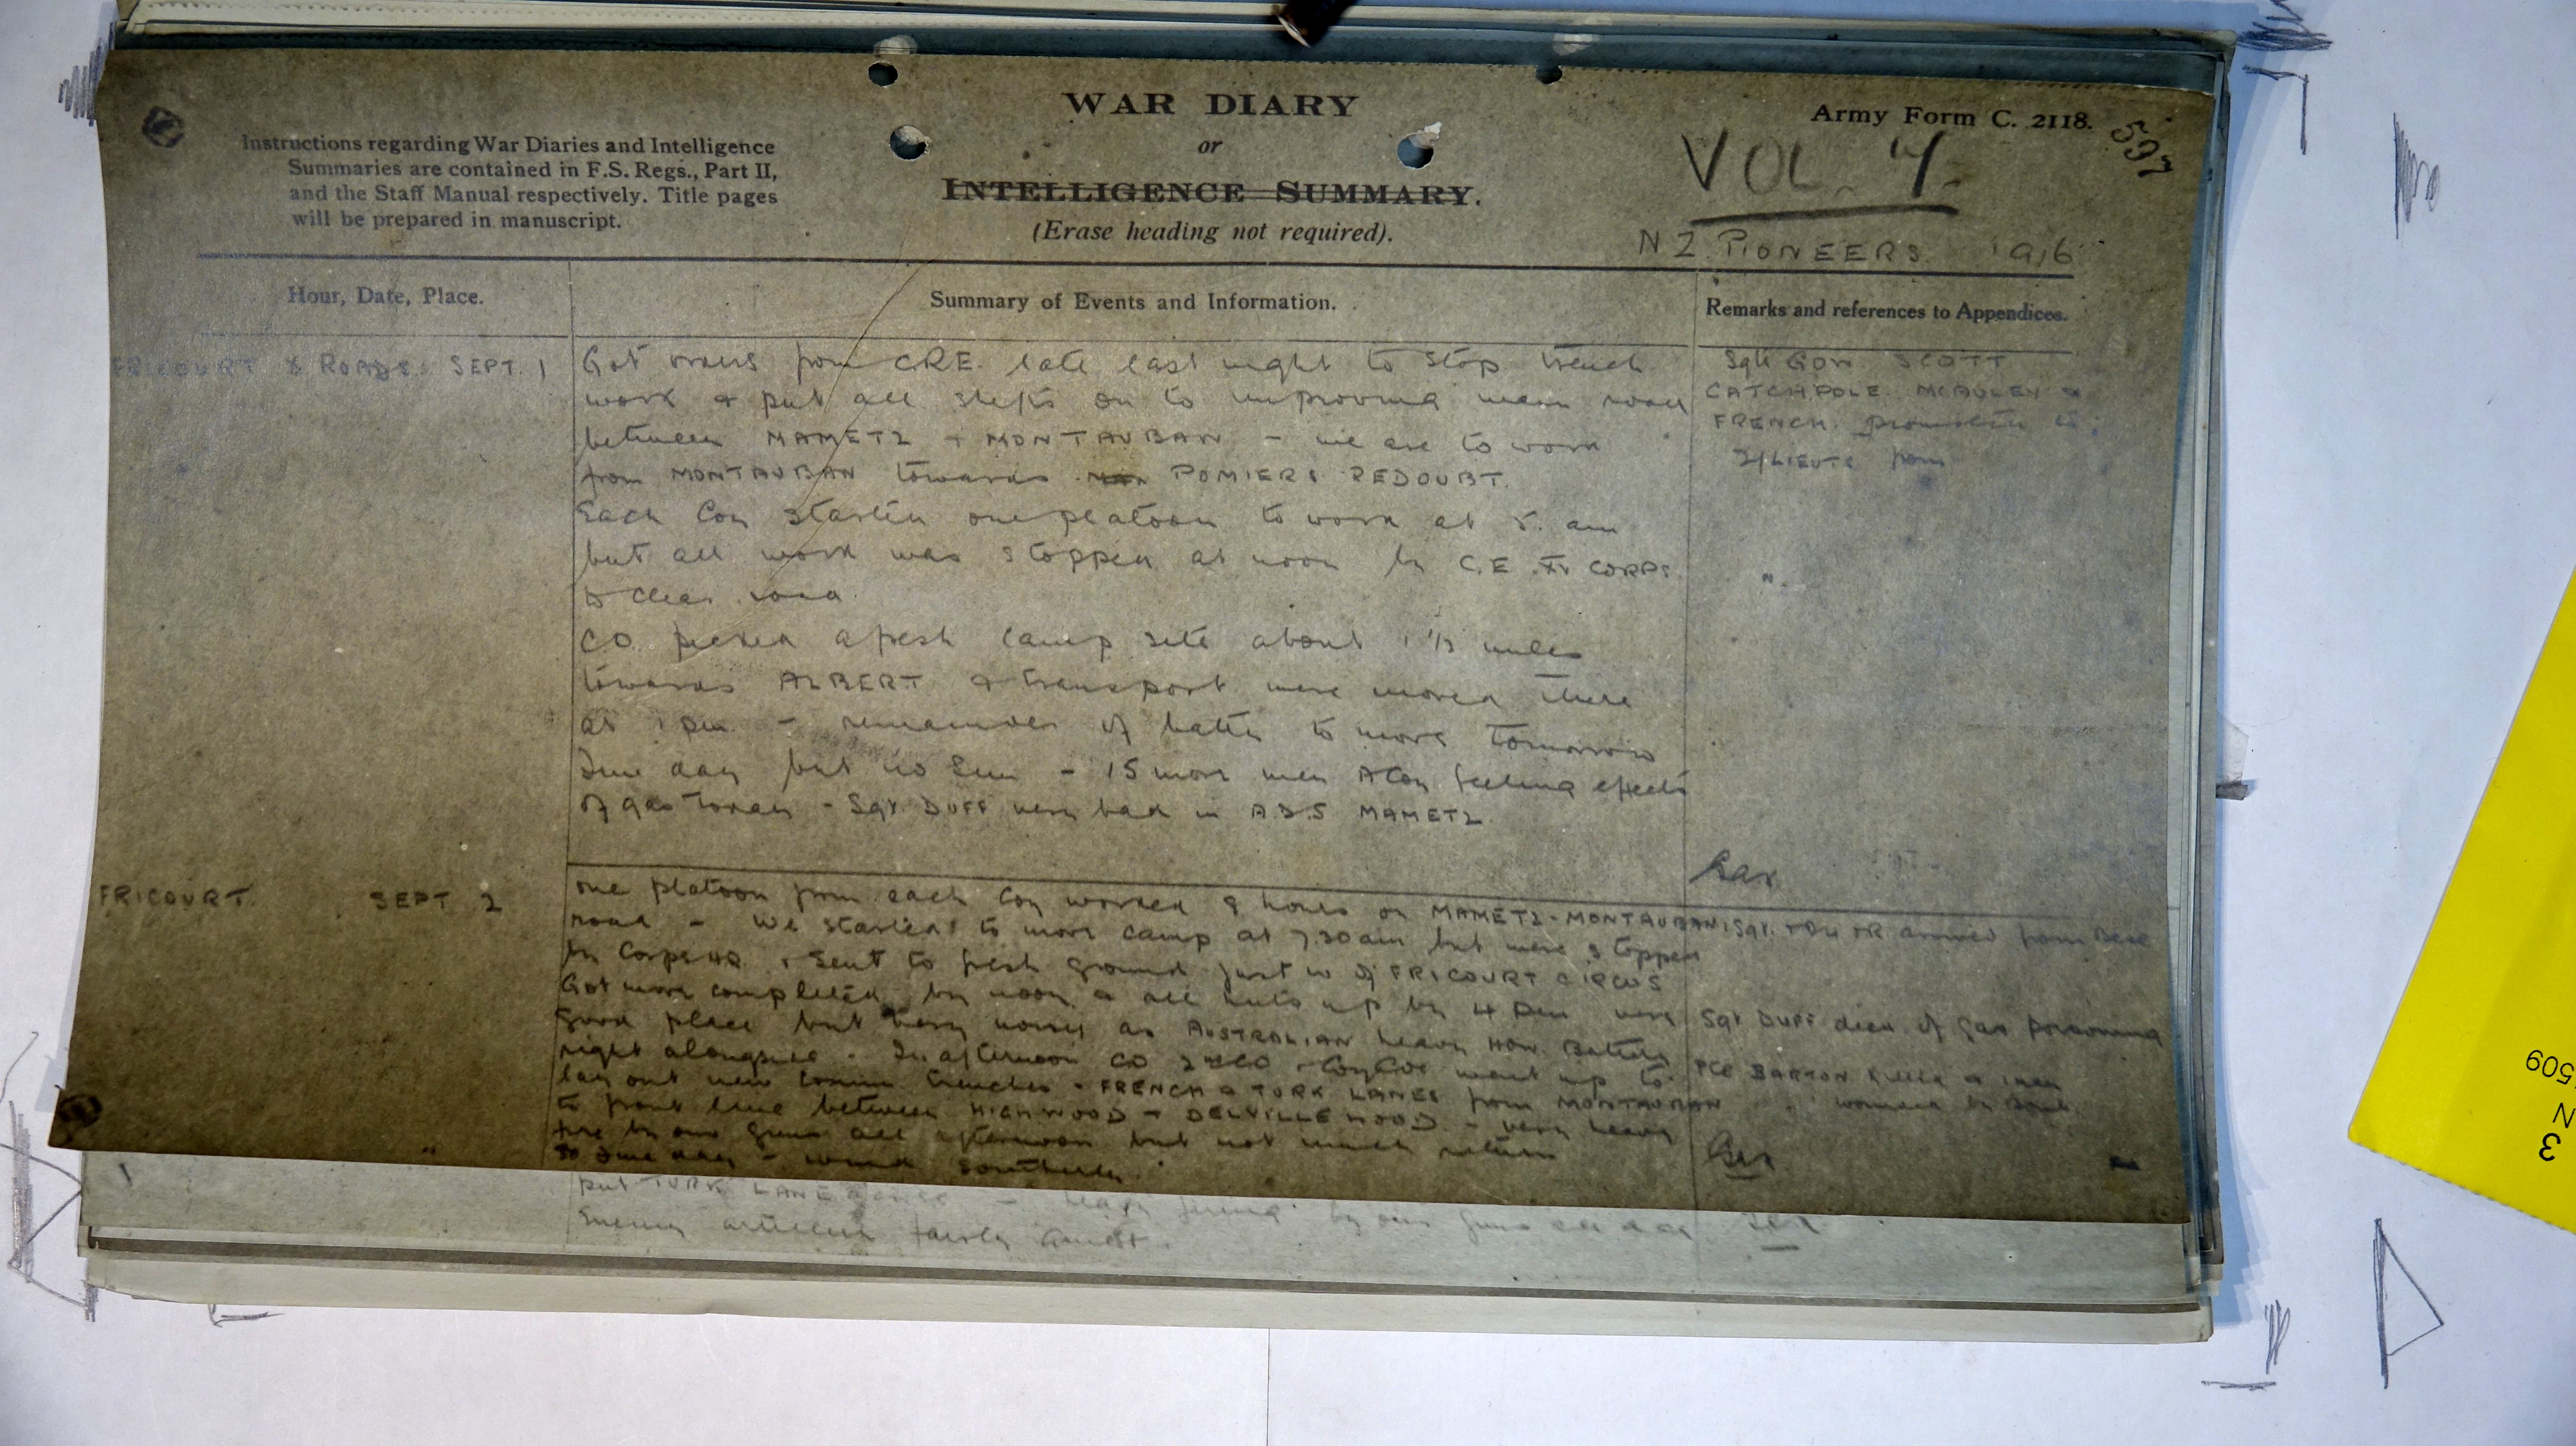 WAR DIARY
or
INTELLIGENCE SUMMARY.
(Erase heading not required).
Army Form C. 2118.
597
VOL. 7.
NZ PIONEERS 1916
Instructions regarding War Diaries and Intelligence
Summaries are contained in F.S. Regs., Part II,
and the Staff Manual respectively. Title pages
will be prepared in manuscript.
Hour, Date, Place.
Summary of Events and Information.
Remarks and references to Appendices.
FRICOURT & ROADS. SEPT. 1
Got orders from CRE late last night to stop trench
work & put all shifts on to improving main road
between MAMETZ & MONTAUBAN - we are to work
from MONTAUBAN towards POMIERS REDOUBT.
Each Coy started one platoon to work at 5. am
but all work was stopped at noon by C.E. XV CORPS
to clear road.
CO picked a fresh camp site about 1 1/2 miles
towards ALBERT & transport were moved there
at 1 pm - remainder of battn to move tomorrow
Fine day but no sun - 15 more men A Coy feeling effects
of gas today - Sgt. DUFF very bad in A.D.S MAMETZ
Sgts GOW SCOTT
CATCHPOLE McAULEY &
FRENCH promoted to
2/LIEUTS from
FRICOURT. SEPT 2
one platoon from each Coy worked 8 hours on MAMETZ-MONTAUBAN
road - We started to move camp at 7.30 am but were stopped
by Corps HQ & sent to fresh ground just W of FRICOURT CIRCUS
Got move completed by noon & all huts up by 4 pm very
good place but very noisy as AUSTRALIAN heavy How. Battery
right alongside. In afternoon CO 2nd CO & Coy Cos went up to
lay out new comm. trenches - FRENCH & TURK LANES from MONTAUBAN
to front line between HIGHWOOD & DELVILLE WOOD. - very heavy
fire by our guns all afternoon but not much return
Fine day - wind southerly.
1 Sgt. OR arrived from Base
Sgt DUFF died of gas poisoning
Pte BARTON killed & men
wounded by
put TURK LANE - heavy firing by our guns all day
Enemy artillery fairly quiet.
509
N
3